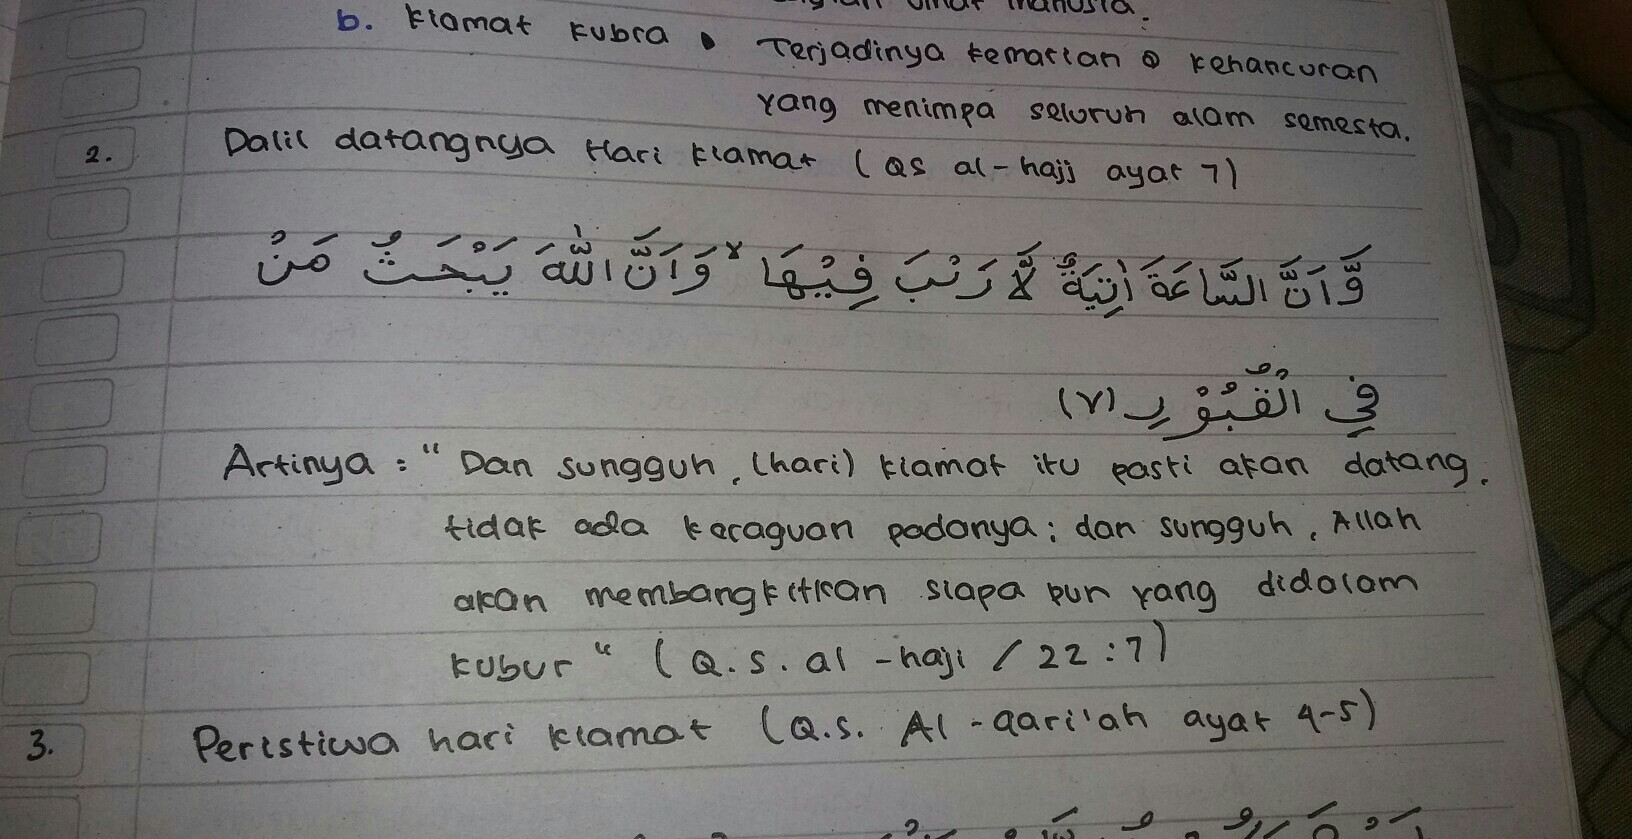 b. Kiamat Kubra • Terjadinya kematian & kehancuran
yang menimpa seluruh alam semesta.
2. Dalil datangnya Hari Kiamat (QS al-hajj ayat 7)
وَّاَنَّ السَّاعَةَ اٰتِيَةٌ لَّا رَيْبَ فِيْهَاۙ وَاَنَّ اللّٰهَ يَبْحَثُ مَنْ
فِى الْقُبُوْرِ (٧)
Artinya : "Dan sungguh, (hari) kiamat itu pasti akan datang,
tidak ada keraguan padanya; dan sungguh, Allah
akan membangkitkan siapa pun yang didalam
kubur" (Q.S. al-haji / 22 : 7)
3. Peristiwa hari kiamat (Q.S. Al-qari'ah ayat 4-5)